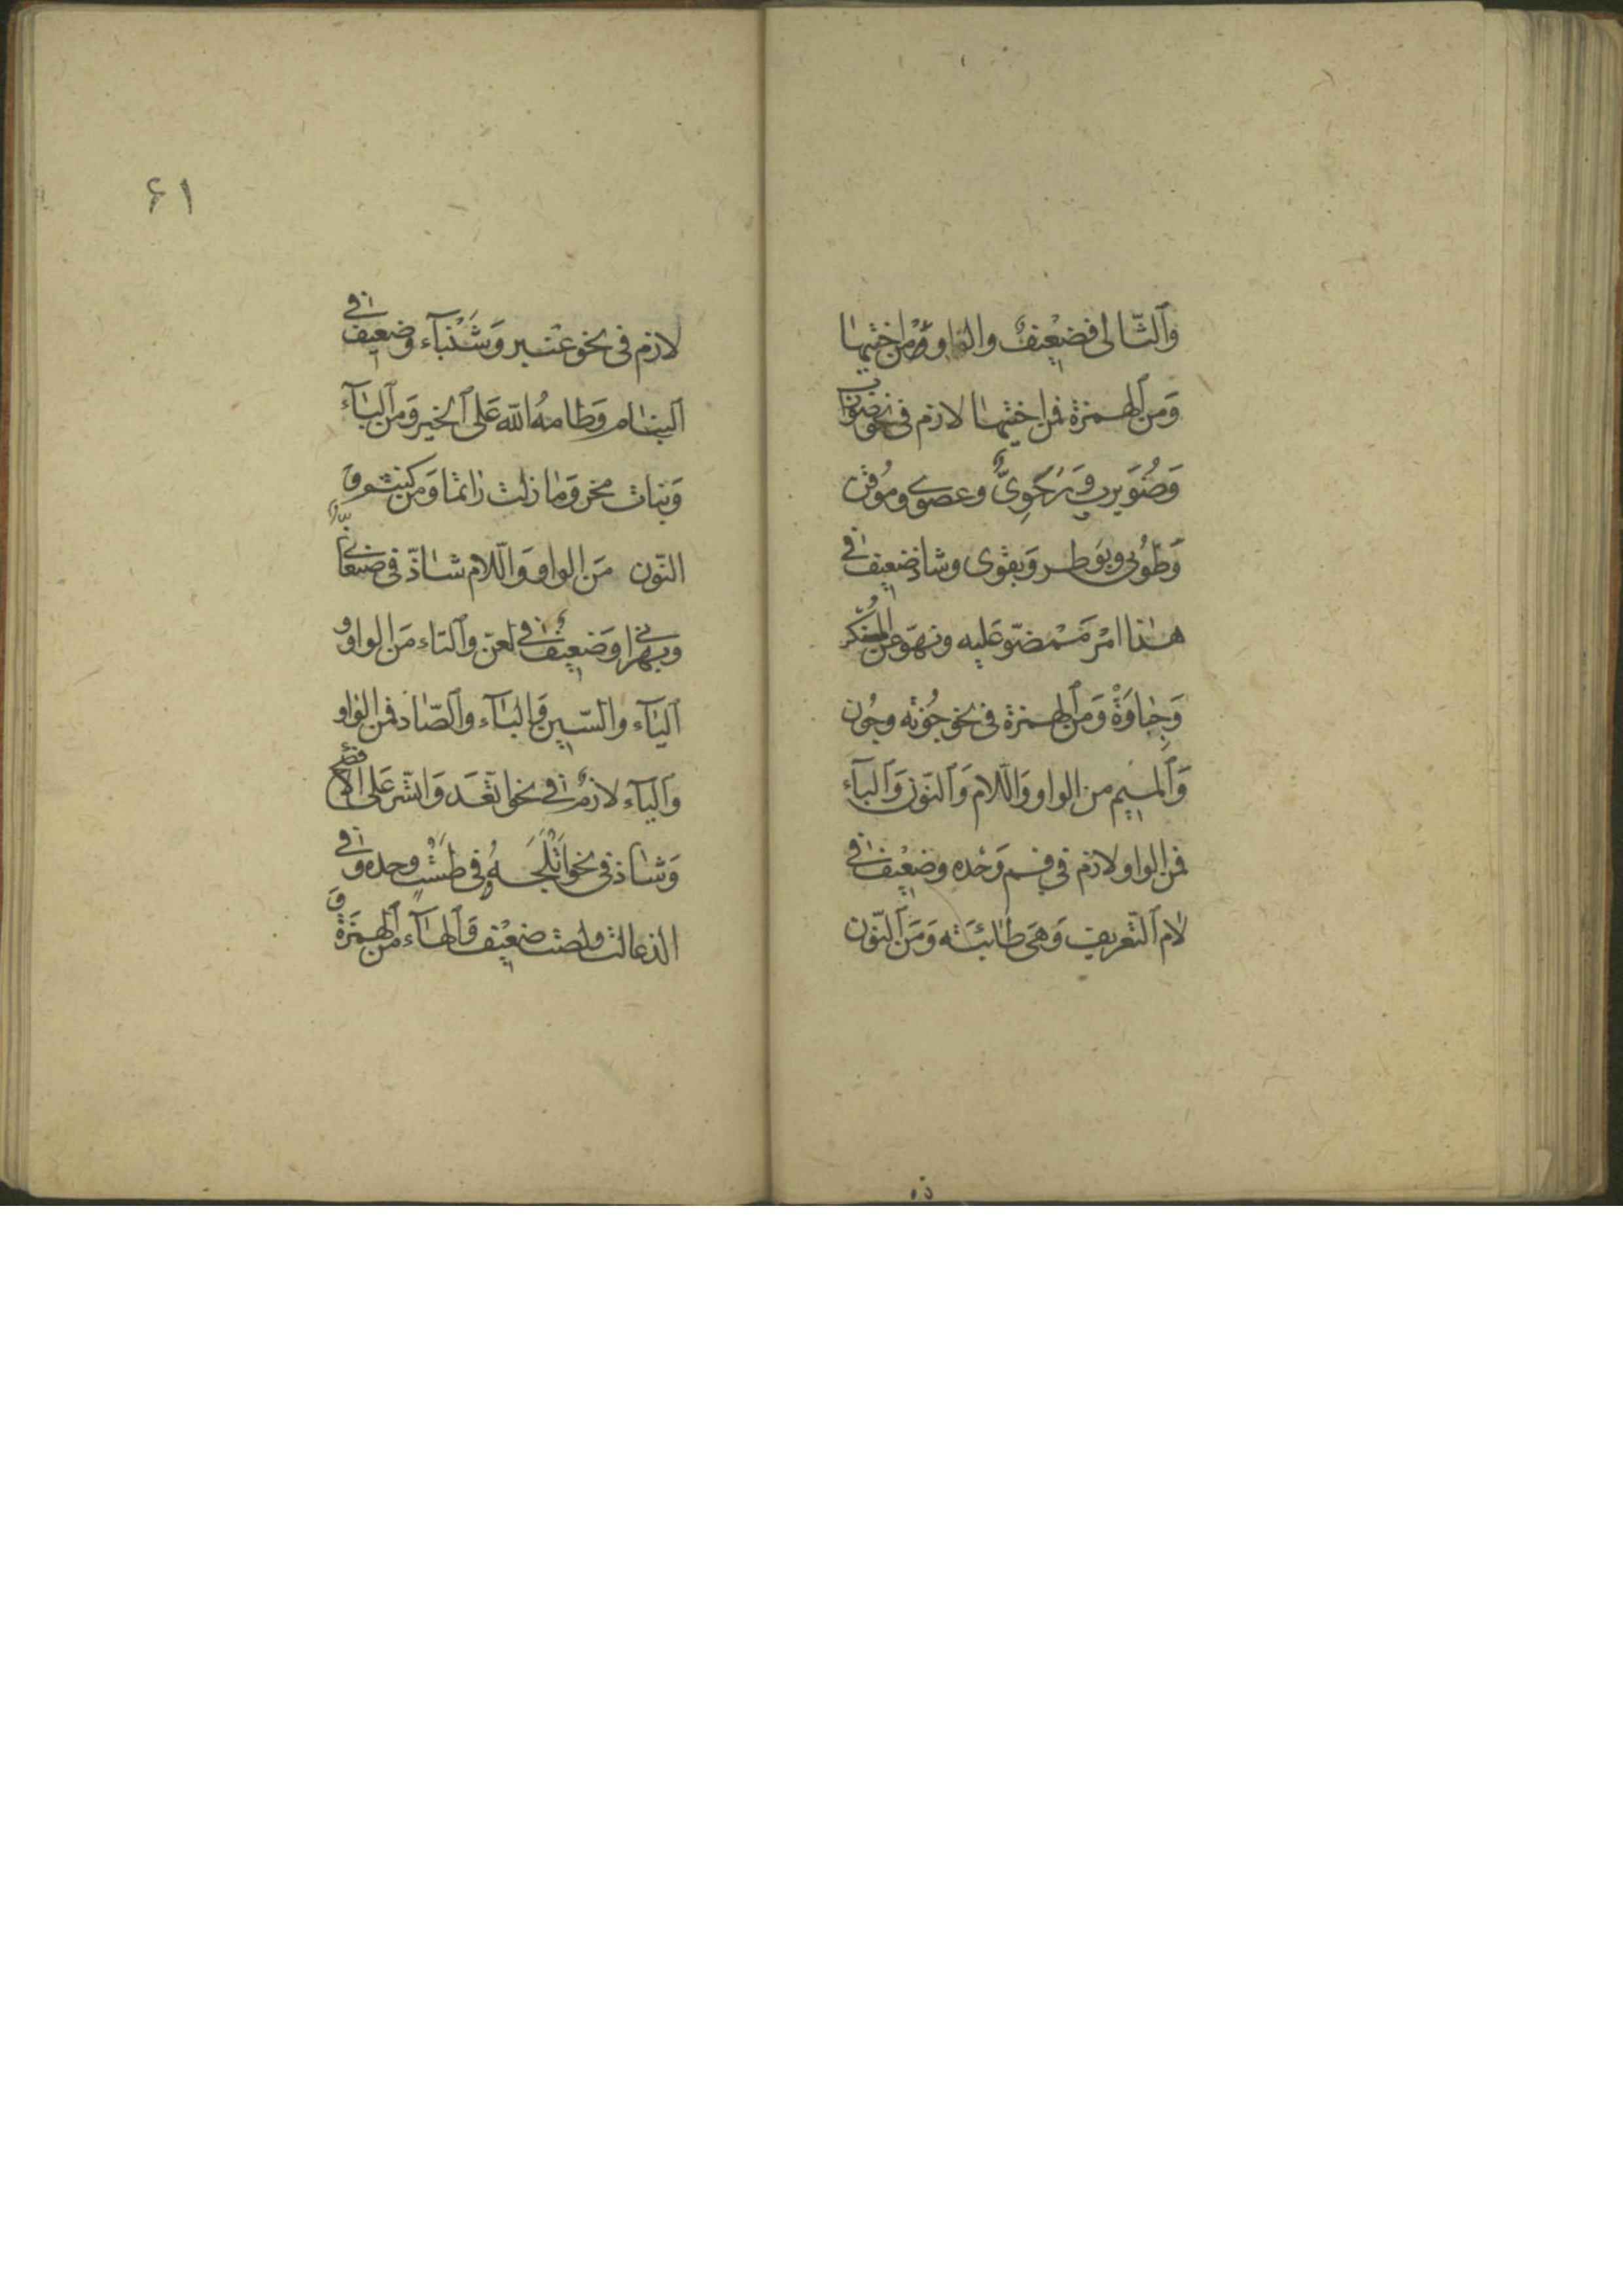 وَالثَّالى فضَعْيفٌ والواو من اختيها
وَمن الهمزة فمن اختيها لازم فى نحو ضوارب
وَضُوَيرب وَرَحَوِىٌّ وعصوى ومُوقن
وَطُوبى وبوطر وَبقوى وشاذ ضعيف فى
هٰذا امْر مَمْضوّ عَليه ونهوّ عن المنكر
وَجِبَاوَةٌ وَمن الهمزة فى نحو جُونه وجُون
وَالميم من الواو وَاللام وَالنّون وَالباء
فمن الواو لازم في فم وَحْده وضعيف فى
لام التّعريف وَهى طائيّته وَمَن النّون
۶۱
لازم فى نحو عنبر وَشَنْبآء وضعيف فى
البنام وَطامهُ الله عَلى الخير وَمن البآء
وَبنات مخر وَما زلت راتما وَمن كثم و
النّون مَن الواو وَاللام شاذّ فى صنعانى
وبهرانى وَضعيف فى لعنّ والتاء مَن الواو و
اليآء والسّين وَالبآء والصّاد فمن الواو
واليآء لازمٌ فى نحو اتّعَد وَاتّسر عَلى الافصح
وَشاذ فى نحو اَتْلَجَهُ فى طَسْتٍ وحده وفى
الذعالت ولصت ضعيف وَالهآء من الهمزة و